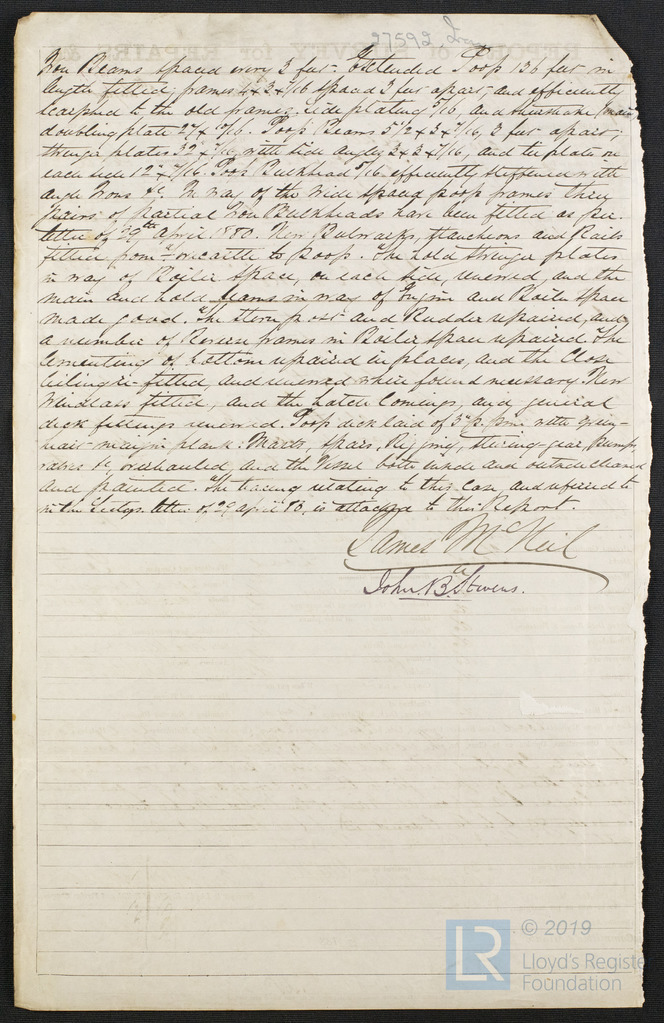 27592 Iron
REPORT of SURVEY for REPAIRS &
Iron Beams spaced every 3 feet. Extended Poop 136 feet in
length fitted; frames 4 x 3 x 7/16 spaced 3 feet apart, and efficiently
scarphed to the old frames, side plating 5/16, and sheerstrake (main)
doubling plate 27 x /16. Poop Beams 5 1/2 x 3 x 7/16, 3 feet apart;
stringer plates 32 x 7/16 with side angles 3 x 3 x 7/16, and tie plate on
each side 12 x 7/16. Poop Bulkhead 5/16 efficiently stiffened with
angle Irons &c. In way of the wide spaced poop frames three
pairs of partial Iron Bulkheads have been fitted as per
letter of 29th April 1880. New Bulwarks, stancheons and Rails
fitted from forecastle to poop. The hold stringer plates
in way of Boiler space, on each side, renewed, and the
main and hold beams in way of Engine and Boiler space
made good. The Stern post and Rudder repaired, and
a number of Reverse frames in Boiler space repaired. The
Cementing of bottom repaired in places, and the Close
ceiling re-fitted, and renewed where found necessary. New
Windlass fitted, and the hatch Comings, and general
deck fittings renewed. Poop deck laid of 3" p. pine with green-
heart margin plank. Masts, spars, Rigging, steering-gear, Pumps
&c, overhauled, and the Vessel both inside and outside cleaned
and painted. The tracing relating to this Case, and referred to
in the Secys. letter of 29 April 80, is attached to this Report.
James McNeil
John B. Stevens.
LR
© 2019
Lloyd's Register
Foundation